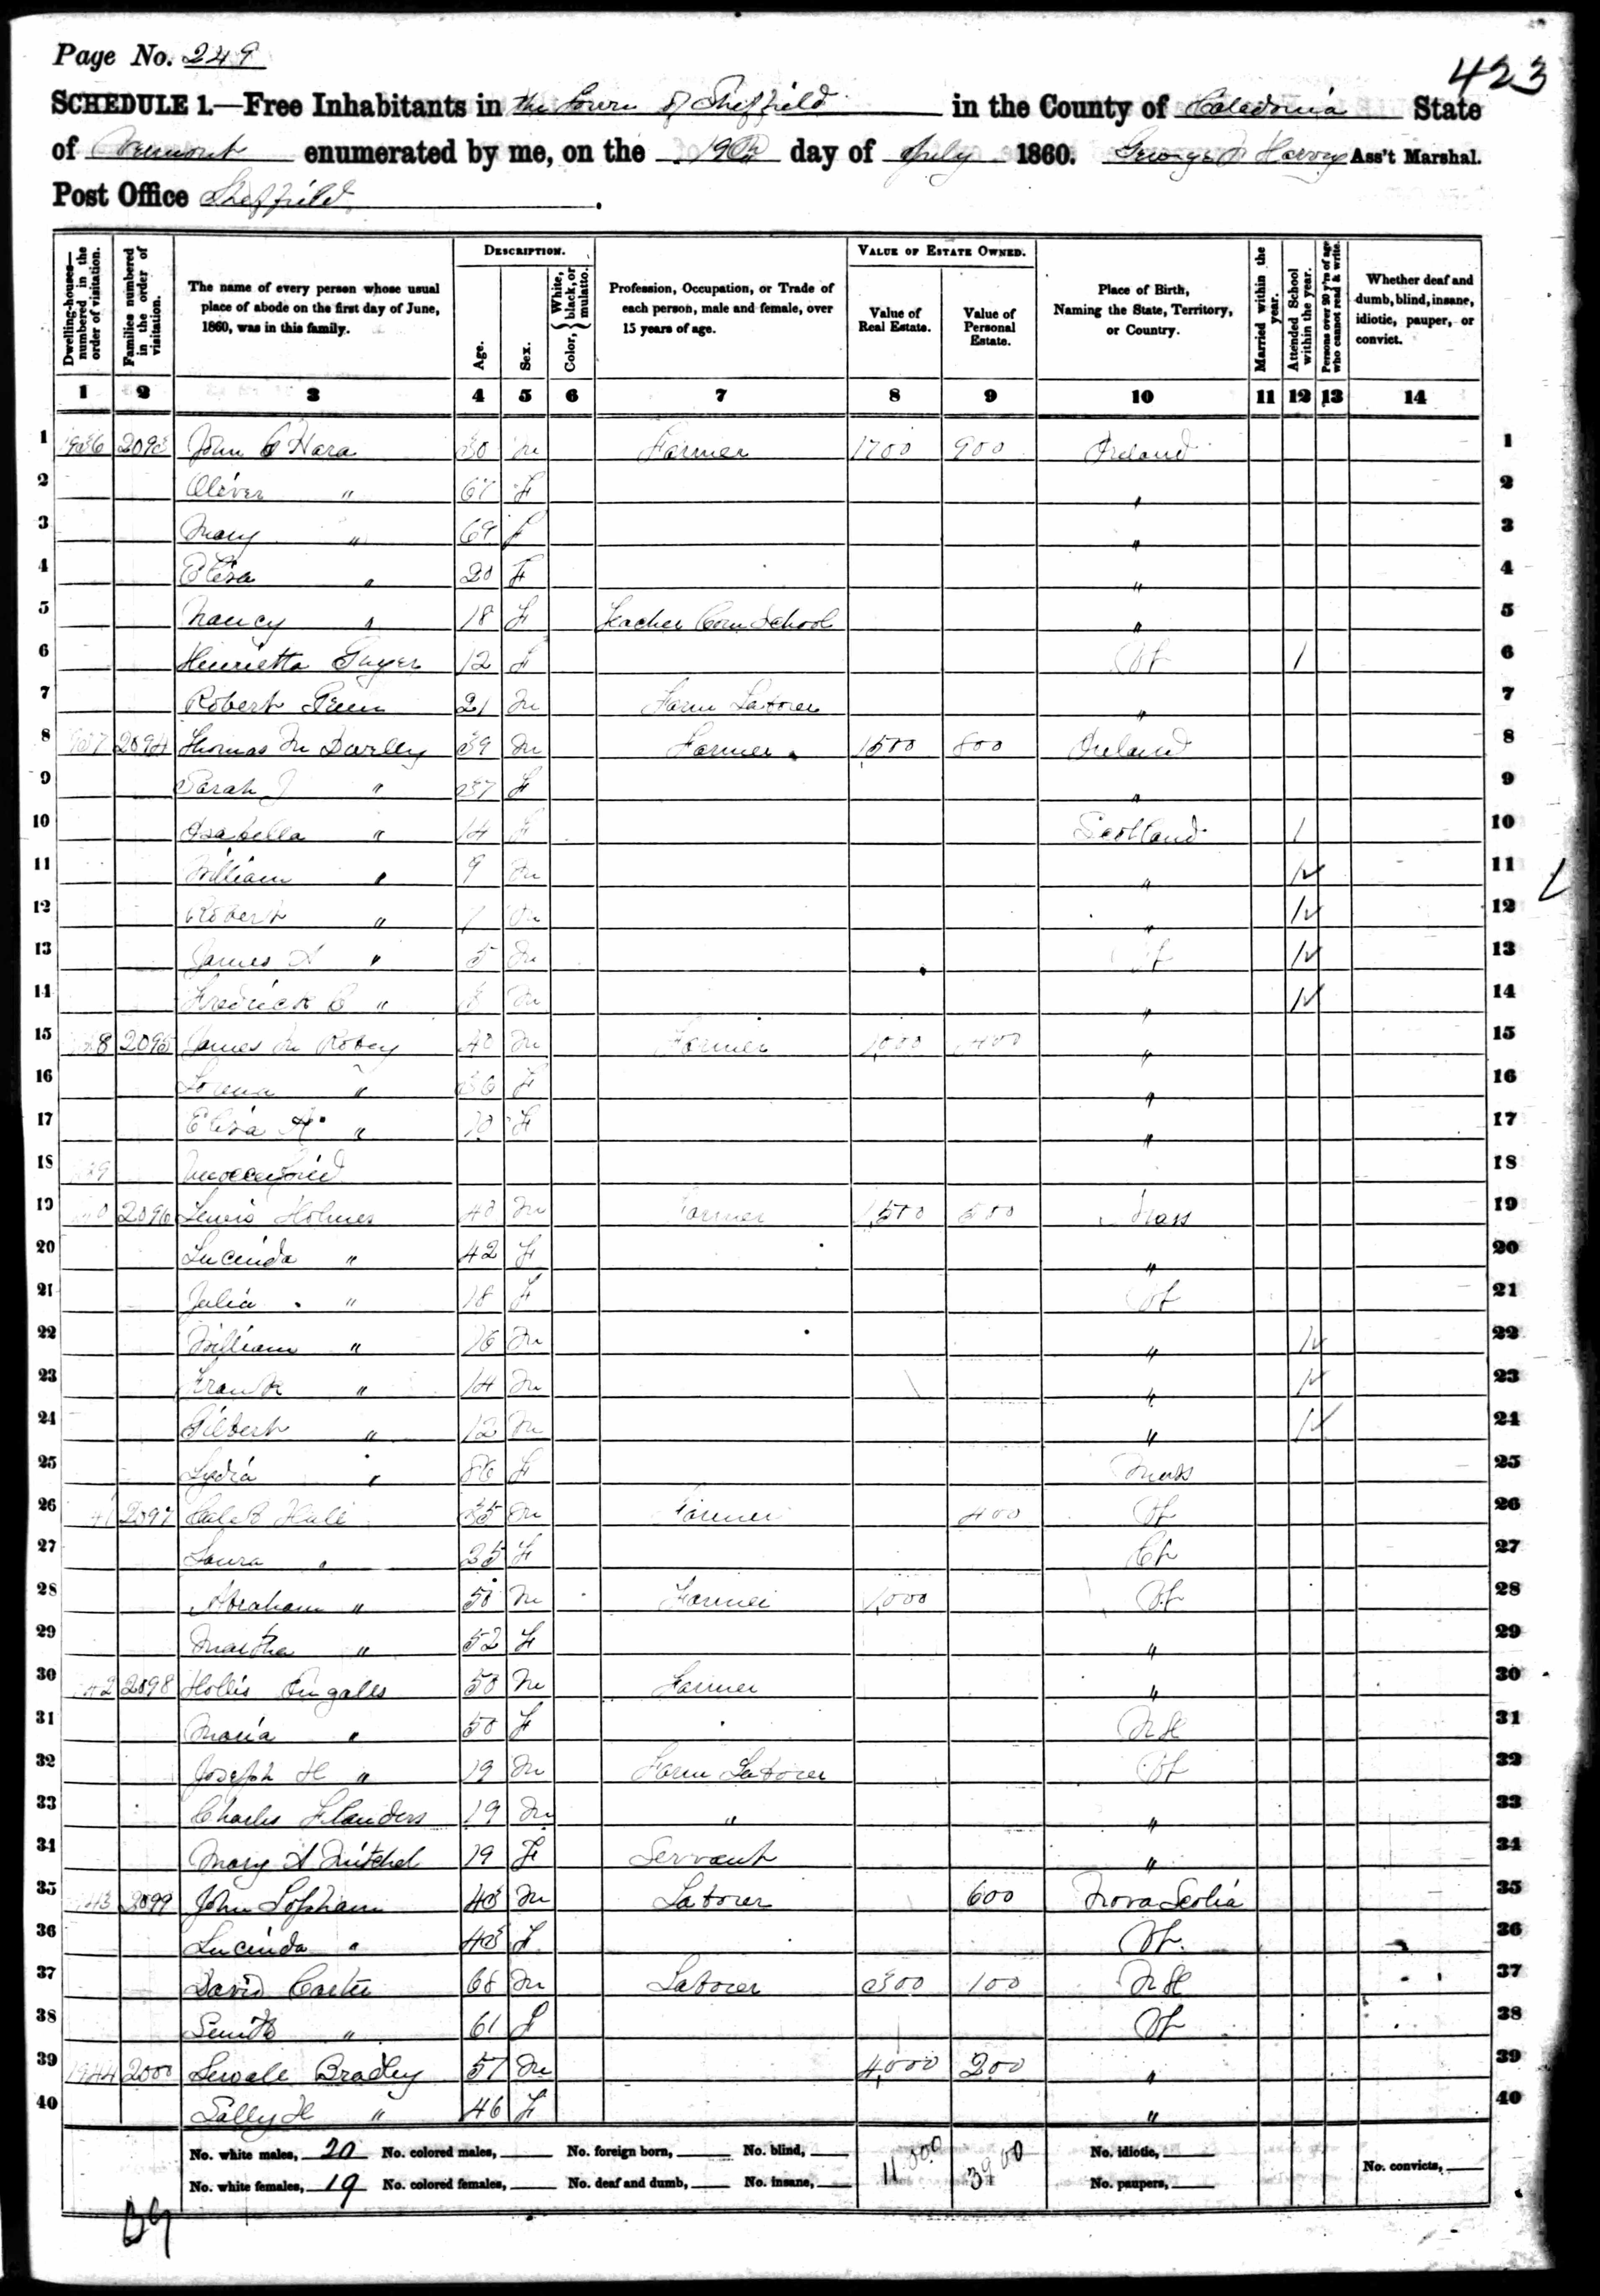 Page No. 249
423
SCHEDULE 1.—Free Inhabitants in the Town of Sheffield in the County of Caledonia State
of Vermont enumerated by me, on the 19th day of July 1860. George Harvey Ass't Marshal.
Post Office Sheffield.
Dwelling-houses—numbered in the order of visitation. Families numbered in the order of visitation. The name of every person whose usual place of abode on the first day of June, 1860, was in this family. DESCRIPTION. Age. Sex. Color, { White, black, or mulatto. Profession, Occupation, or Trade of each person, male and female, over 15 years of age. VALUE OF ESTATE OWNED. Value of Real Estate. Value of Personal Estate. Place of Birth, Naming the State, Territory, or Country. Married within the year. Attended School within the year. Persons over 20 y'rs of age who cannot read & write. Whether deaf and dumb, blind, insane, idiotic, pauper, or convict.
1 2 3 4 5 6 7 8 9 10 11 12 13 14
1 1936 2093 John O Hara 30 m Farmer 1700 900 Ireland 1
2 Oliver " 67 F " 2
3 Mary " 69 f " 3
4 Eliza " 20 F " 4
5 Nancy " 18 F Teacher Com School " 5
6 Henrietta 12 F Vt 1 6
7 Robert 21 m Farm Laborer " 7
8 937 2094 Thomas Mc Darley 39 m Farmer 1500 800 Ireland 8
9 Sarah J " 37 F " 9
10 Isabella " 14 F Scotland 1 10
11 William " 9 m " 1 11
12 Robert " 7 m " 1 12
13 James A " 5 m Vt 1 13
14 Fredrick C " m " 1 14
15 8 2095 James M Robey 40 m Farmer 1,000 400 " 15
16 Lorena " 36 F " 16
17 Eliza A " 10 F " 17
18 39 Unoccupied 18
19 0 2096 Lewis Holmes 40 m Farmer 1,500 500 Mass 19
20 Lucinda " 42 F " 20
21 Julia " 18 F Vt 21
22 William " 16 m " 1 22
23 Frank " 14 m " 1 23
24 Gilbert " 12 m " 1 24
25 Lydia " 86 F Mass 25
26 41 2097 Caleb Hall 35 m Farmer 400 Vt 26
27 Laura " 25 F Ct 27
28 Abraham " 50 m Farmer 1,000 Vt 28
29 Martha " 52 F " 29
30 42 2098 Hollis Ingalls 50 m Farmer " 30
31 Maria " 50 F N H 31
32 Joseph H " 19 m Farm Laborer Vt 32
33 Charles Flanders 19 m " " 33
34 Mary A Mitchel 19 F Servant " 34
35 43 2099 John Lopham 43 m Laborer 600 Nova Scotia 35
36 Lucinda " 43 F Vt. 36
37 David Carter 68 m Laborer 300 100 N H 37
38 " 61 F Vt 38
39 1944 2000 Sewale Bradley 57 m 4,000 200 " 39
40 Sally H " 46 F " 40
No. white males, 20 No. colored males, No. foreign born, No. blind, 11.000 3900 No. idiotic,
No. white females, 19 No. colored females, No. deaf and dumb, No. insane, No. paupers, No. convicts,